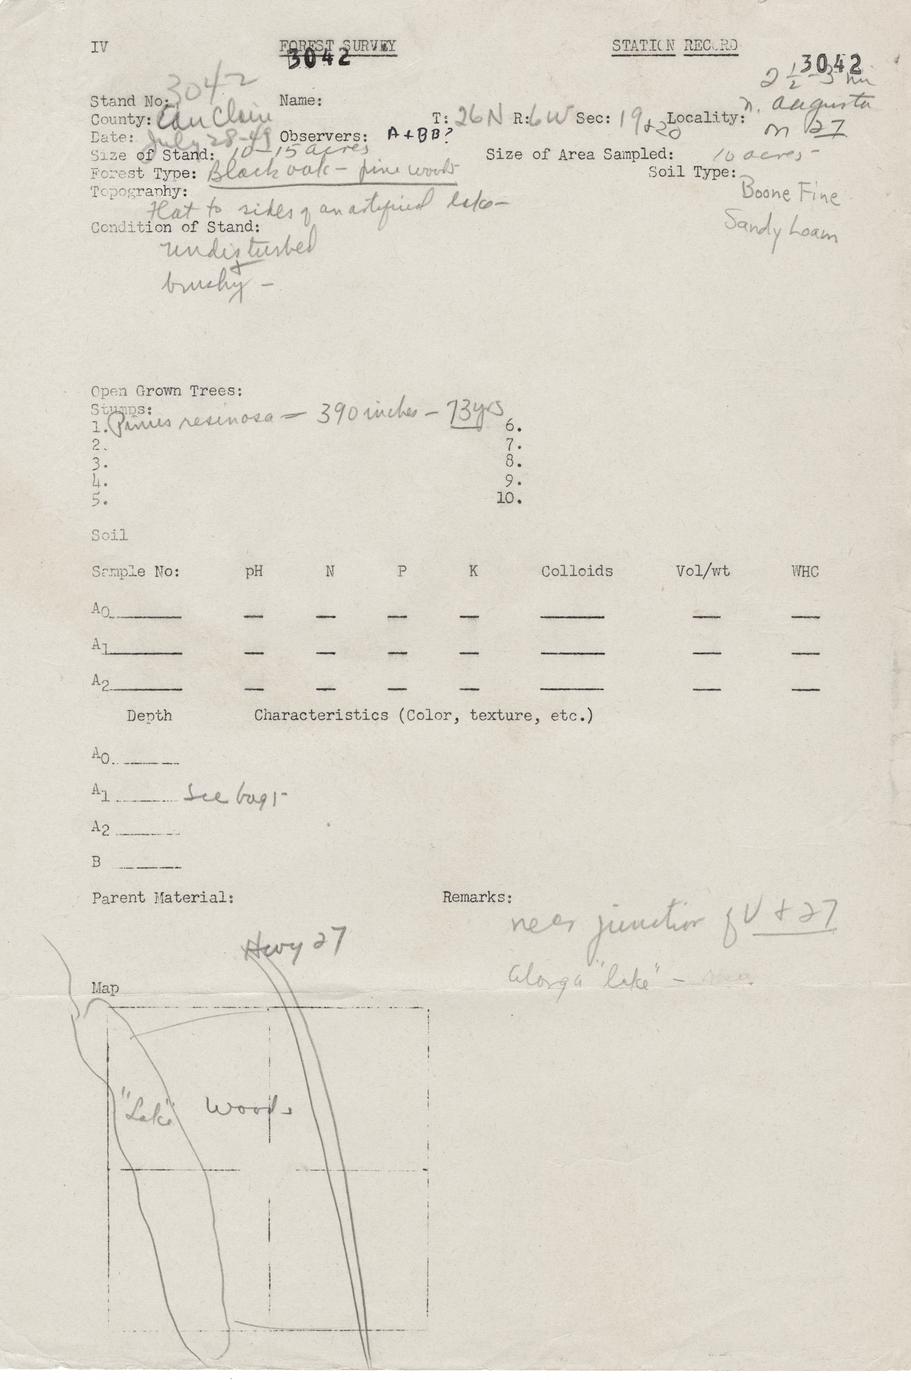 IV FOREST SURVEY STATION RECORD
3042 3042
Stand No: 3042 Name: 2 1/2-3 mi
County: Eau Claire T: 26N R: 6W Sec: 19+20 Locality: n. Augusta
Date: July 28-49 Observers: A+BB? on 27
Size of Stand: 10-15 acres Size of Area Sampled: 10 acres-
Forest Type: Black oak - pine woods Soil Type: Boone Fine
Topography: Sandy Loam
Flat to sides of an artificial lake-
Condition of Stand:
undisturbed
+
brushy -
Open Grown Trees:
Stumps:
1. Pinus resinosa = 390 inches - 73yrs 6.
2. 7.
3. 8.
4. 9.
5. 10.
Soil
Sample No: pH N P K Colloids Vol/wt WHC
A0
A1
A2
Depth Characteristics (Color, texture, etc.)
A0
A1 See bag-
A2
B
Parent Material: Remarks:
near junction of V + 27
Hwy 27
Along a "lake" -
Map
"Lake" Woods